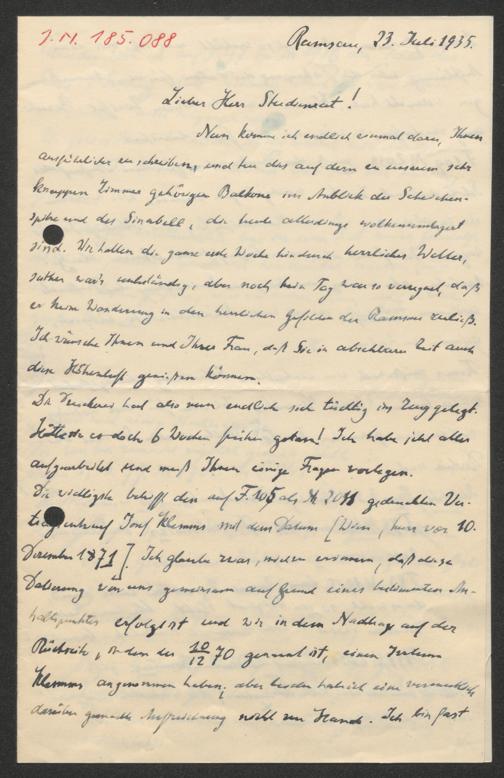 J.N. 185.088
Ramsau, 23. Juli 1935.
Lieber Herr Studienrat!
Nun komme ich endlich einmal dazu, Ihnen
ausführlicher zu schreiben, und tue das auf dem zu unserem sehr
knappen Zimmer gehörigen Balkone im Anblick der Scheichen-
spitze und des Sinabell, die heute allerdings wolkenumlagert
sind. Wir hatten die ganze erste Woche hindurch herrliches Wetter,
seither war's unbeständig, aber noch kein Tag war so verregnet, daß
er keine Wanderung in den herrlichen Gefilden der Ramsau zuließ.
Ich wünsche Ihnen und Ihrer Frau, daß Sie in absehbarer Zeit auch
diese Höhenluft genießen können.
Die Druckerei hat also nun endlich sich tüchtig ins Zeug gelegt.
Hätte sie es doch 6 Wochen früher getan! Ich habe jetzt alles
aufgearbeitet und muß Ihnen einige Fragen vorlegen.
Die wichtigste betrifft den auf F. 105 als gedruckten Ver-
tragsentwurf Josef Klemms mit dem Datum [Wien, kurz vor 10.
Dezember 1871]. Ich glaube zwar, mich zu erinnern, daß diese
Datierung von uns gemeinsam auf Grund eines bestimmten An-
haltspunktes erfolgt ist und wir in dem Nachtrag auf der
Rückseite, in dem der 10/12 70 genannt ist, einen Irrtum
Klemms angenommen haben, aber besitze leider eine
darüber gemachte Aufzeichnung nicht zur Hand. Ich bin fast